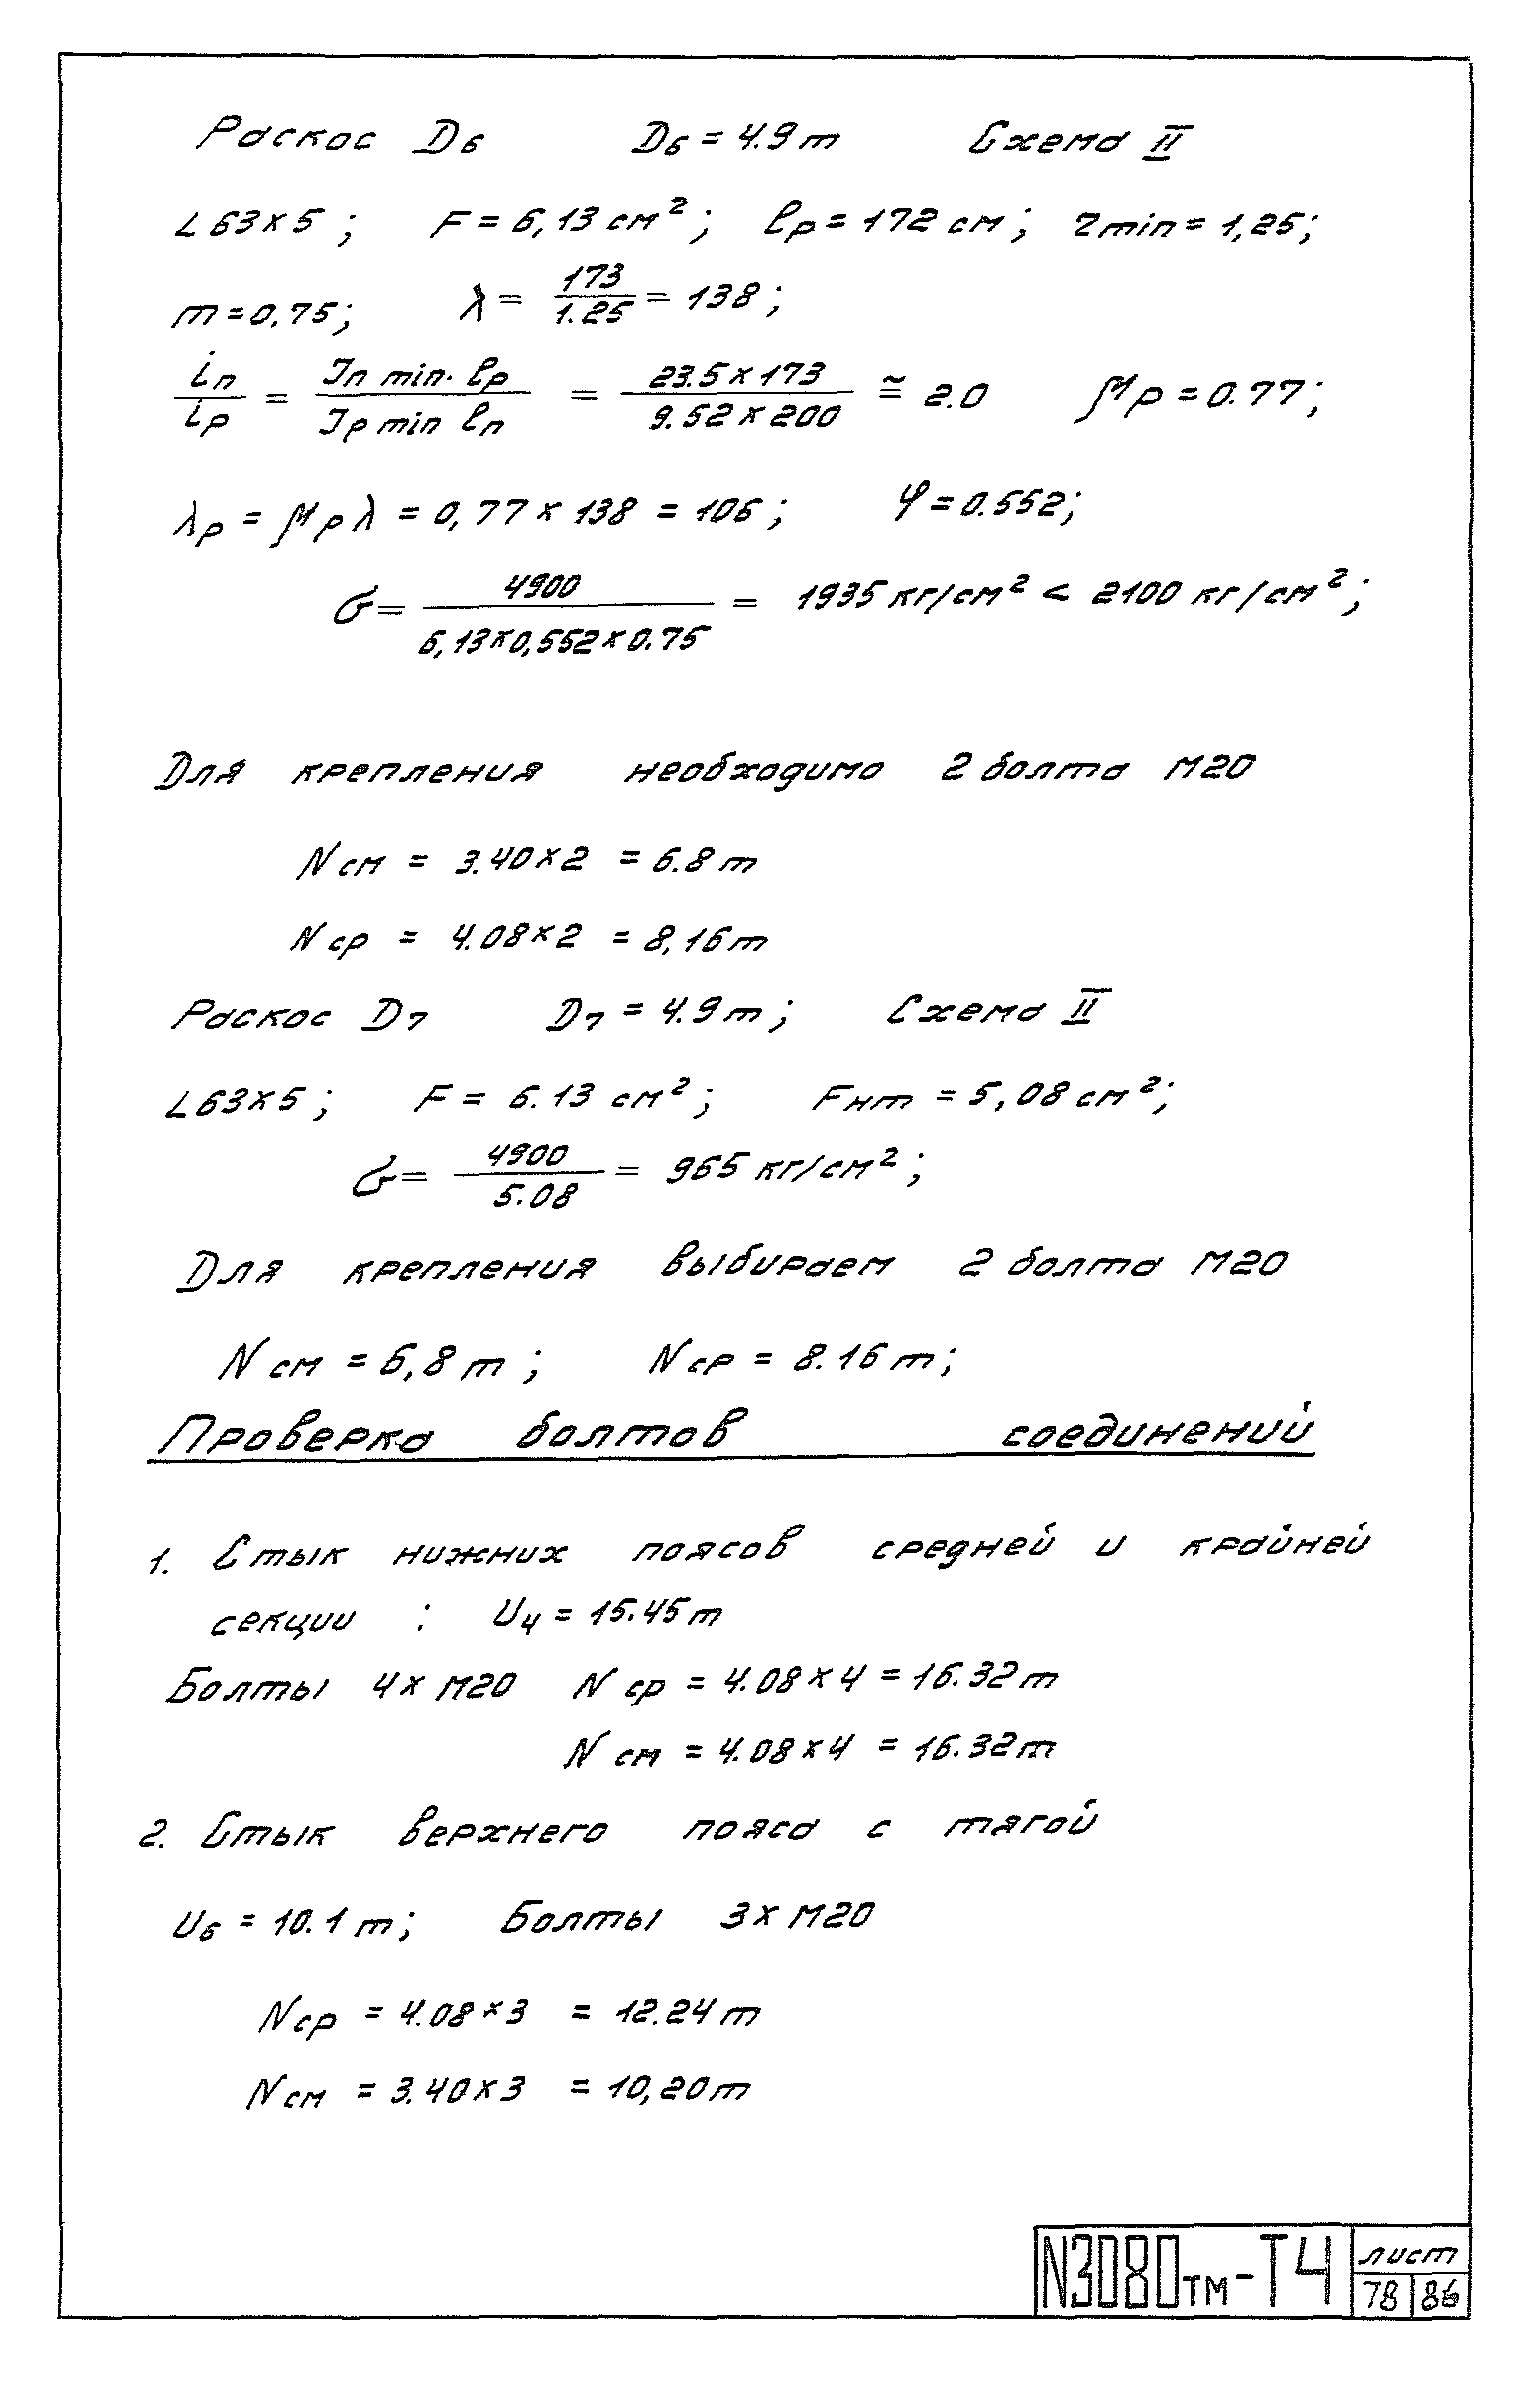 Раскос D6 D6 = 4.9 т Схема II
L 63×5 ; F = 6,13 см² ; ℓр = 172 см ; rmin = 1,25 ;
m = 0,75 ; λ = 173/1.25 = 138 ;
iп/iр = Jп min. ℓр / Jр min ℓп = 23.5×173 / 9.52×200 ≅ 2.0 μр = 0.77 ;
λр = μр λ = 0,77 × 138 = 106 ; φ = 0.552 ;
σ = 4900 / 6,13×0,552×0.75 = 1935 кг/см² < 2100 кг/см² ;
Для крепления необходимо 2 болта М20
Nсм = 3.40×2 = 6.8 т
Nср = 4.08×2 = 8,16 т
Раскос D7 D7 = 4.9 т ; Схема II
L 63×5 ; F = 6.13 см² ; Fнт = 5,08 см² ;
σ = 4900 / 5.08 = 965 кг/см² ;
Для крепления выбираем 2 болта М20
Nсм = 6,8 т ; Nср = 8.16 т ;
Проверка болтов соединений
1. Стык нижних поясов средней и крайней
секции : U4 = 15.45 т
Болты 4× М20 Nср = 4.08×4 = 16.32 т
Nсм = 4.08×4 = 16.32 т
2. Стык верхнего пояса с тягой
U6 = 10.1 т ; Болты 3× М20
Nср = 4.08×3 = 12.24 т
Nсм = 3.40×3 = 10,20 т
N3080тм-Т4
лист
78 86